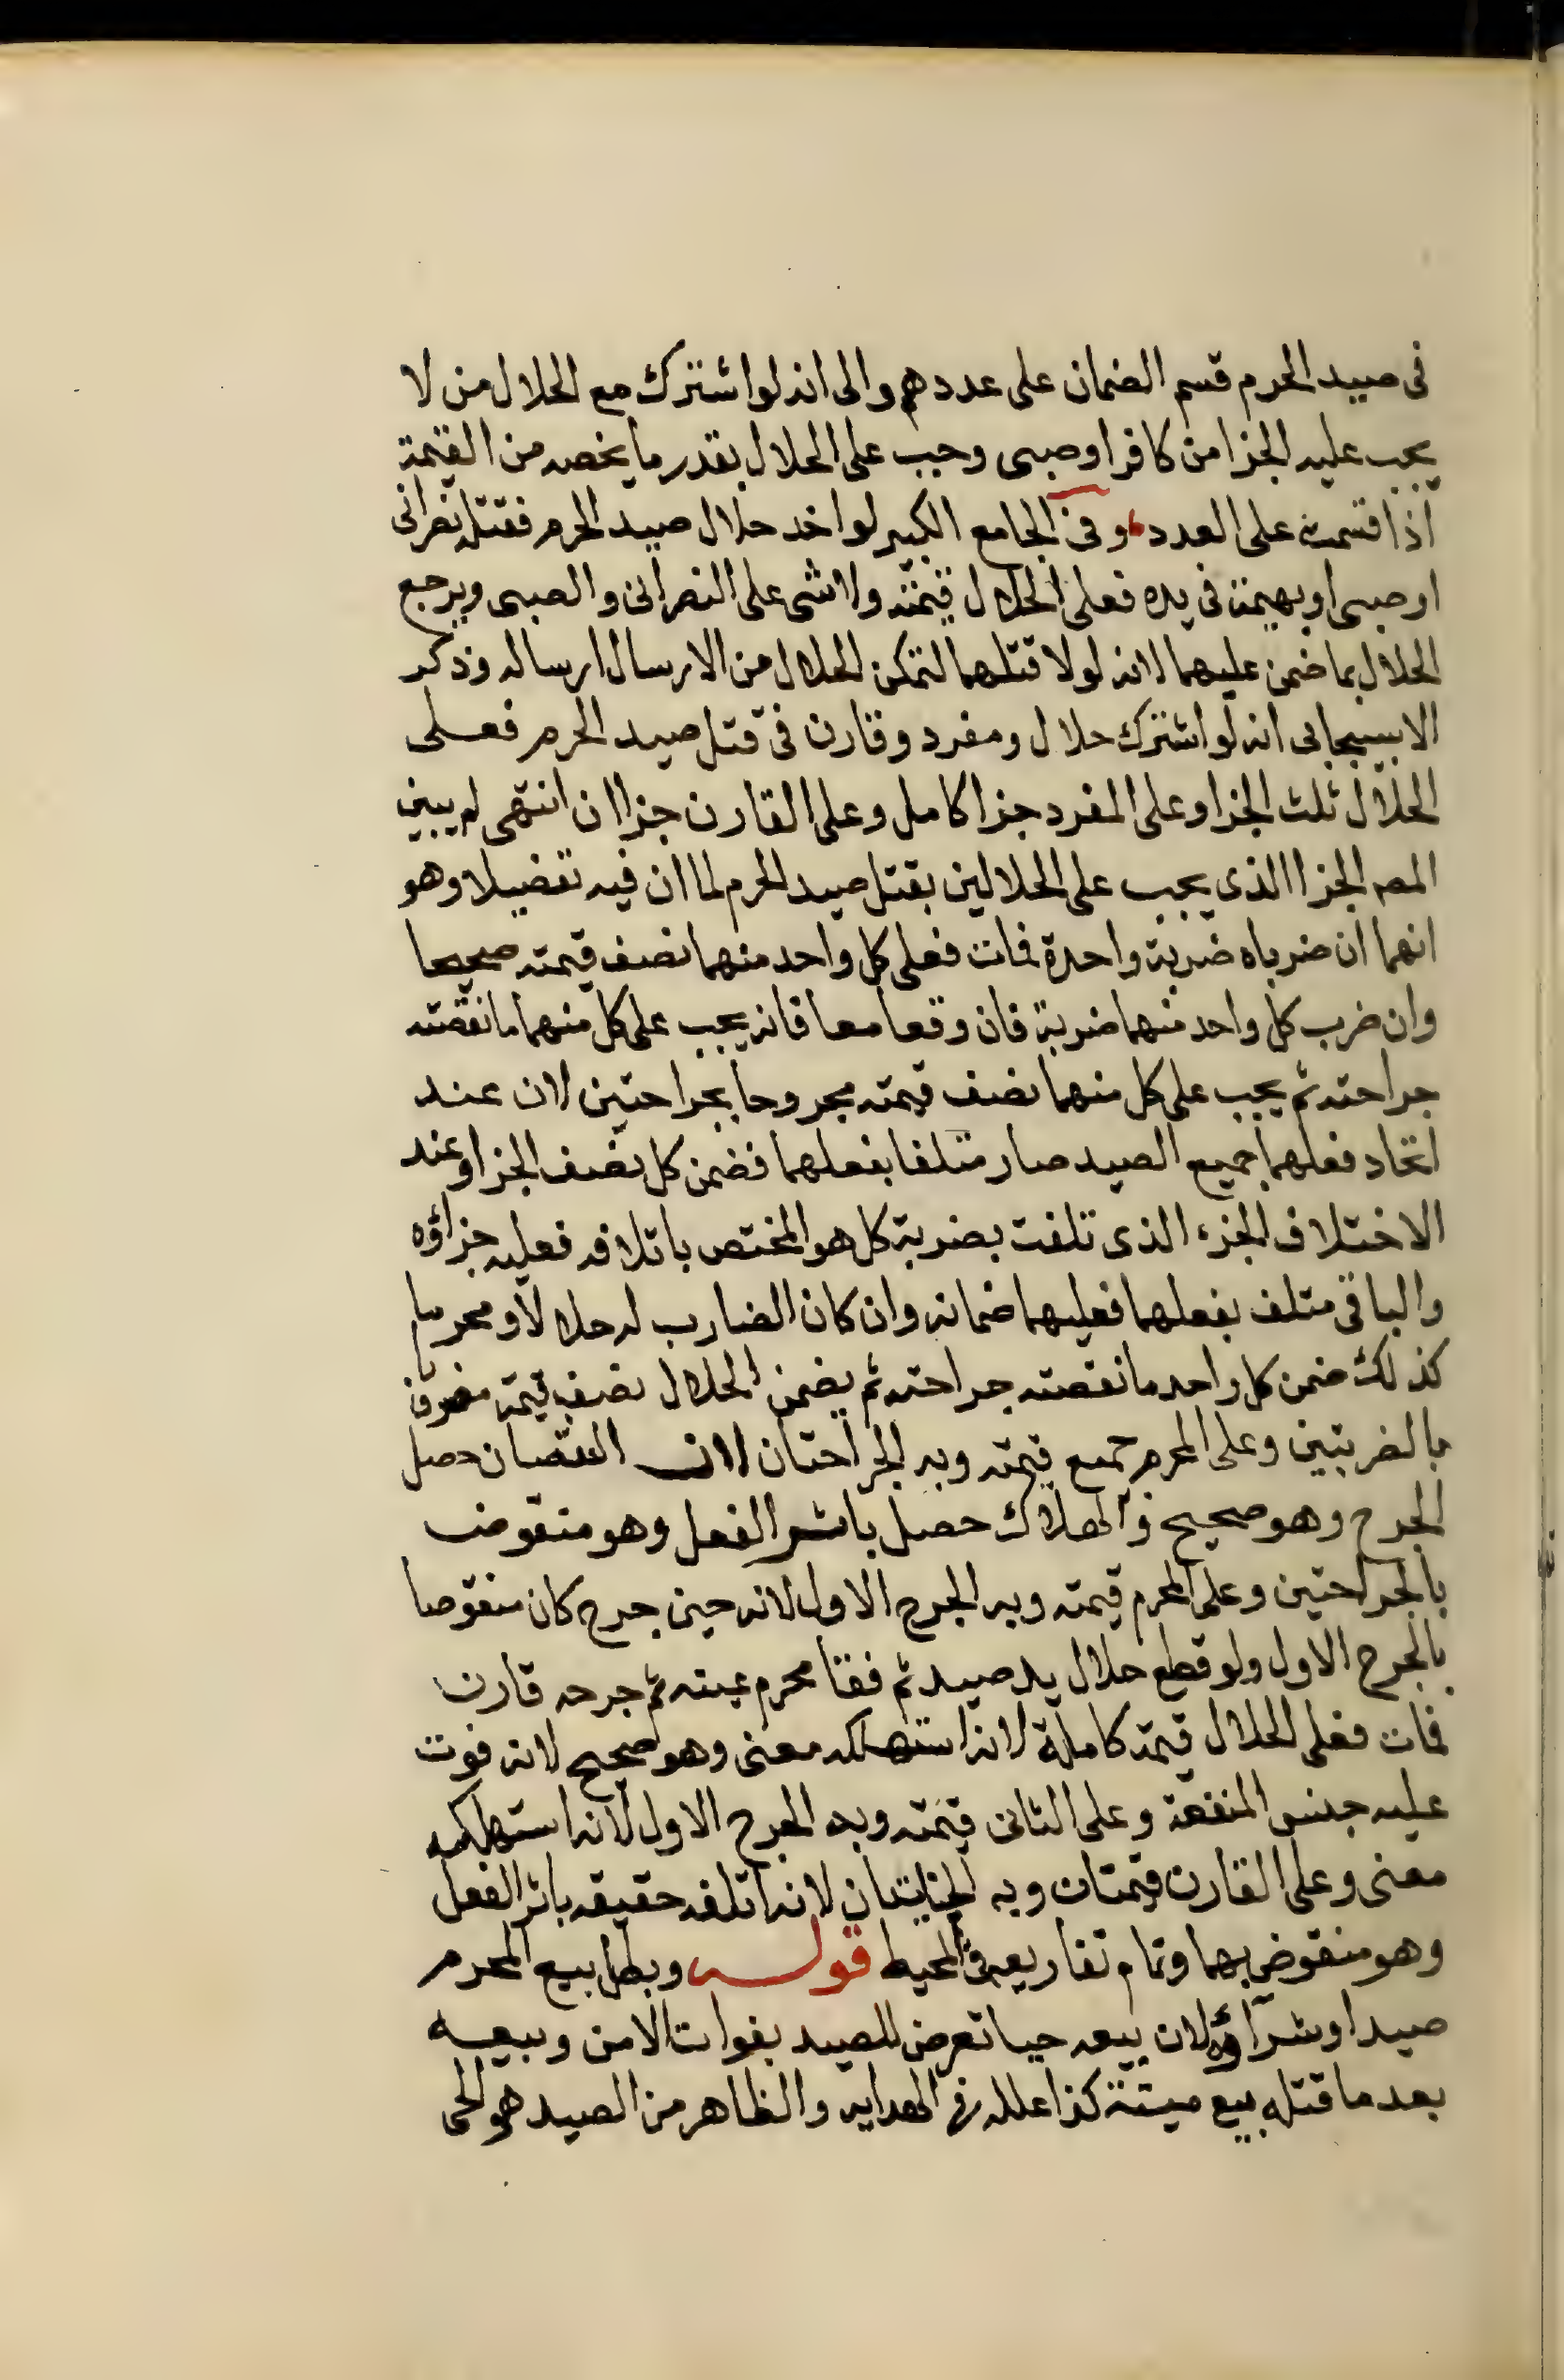 فى صيد الحرم قسم الضمان على عددهم والى انه لو اشترك مع الحلال من لا
يجب عليه الجزا من كافر او صبى وجب على الحلال بقدر ما يخصه من القيمة
اذا قسمت على العدد وفى الجامع الكبير لو اخد حلال صيد الحرم فقتله نصرانى
او صبى او بهيمة فى يده فعلى الحلال قيمته ولا شى على النصرانى والصبى ويرجع
الحلال بما ضمن عليهما لانه لولا قتلهما لتمكن الحلال من الارسال ارساله وذكر
الاسبيجابى انه لو اشترك حلال ومفرد وقارن فى قتل صيد الحرم فعلى
الحلال ثلث الجزا وعلى المفرد جزا كامل وعلى القارن جزاان انتهى لم يبين
المصه الجزا الذى يجب على الحلالين بقتل صيد الحرم لما ان فيه تفصيلا وهو
انهما ان ضرباه ضربة واحدة فمات فعلى كل واحد منهما نصف قيمته صحيحا
وان ضرب كل واحد منهما ضربة فان وقعا معا فانه يجب على كل منهما ما نقصته
جراحته ثم يجب على كل منهما نصف قيمته مجروحا بجراحتين لان عند
اتحاد فعلهما جميع الصيد صار متلفا بفعلهما فضمن كل نصف الجزا وعند
الاختلاف الجزء الذى تلفت بضربة كل هو المختص باتلافه فعليه جزاؤه
والباقى متلف بفعلهما فعليهما ضمانه وان كان الضارب له حلالا ومحرما
كذلك ضمن كل واحد ما نقصته جراحته ثم يضمن الحلال نصف قيمته مضروبا
بالضربتين وعلى المحرم جميع قيمته وبه الجراحتان لان النقصان حصل
الجرح وهو صحيح والهلاك حصل باثر الفعل وهو منقوض
بالجراحتين وعلى المحرم قيمته وبه الجرح الاول لانه حين جرح كان منقوصا
بالجرح الاول ولو قطع حلال يد صيد ثم فقا محرم عينه ثم جرحه قارن
فمات فعلى الحلال قيمة كاملة لانه استهلكه معنى وهو صحيح لانه فوت
عليه جنس المنفعة وعلى الثانى قيمته وبه الجرح الاول لانه استهلكه
معنى وعلى القارن قيمتان وبه الجنايتان لانه اتلفه حقيقه باثر الفعل
وهو منقوض بهما وتمام تفاريعه فى المحيط قوله وبطل بيع المحرم
صيدا وشراؤه لان بيعه حيا تعرض للصيد بفوات الامن وبيعه
بعد ما قتله بيع ميتة كذا علله فى الهدايه والظاهر من الصيد هو الحى